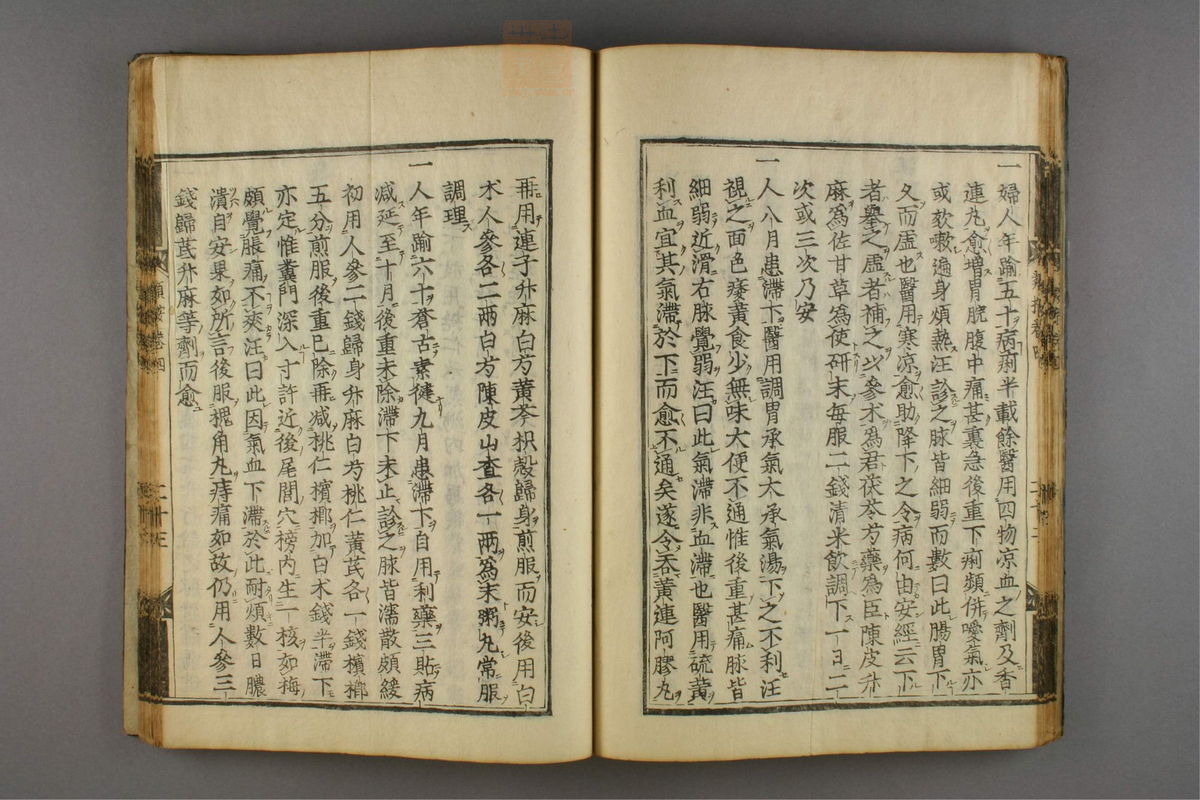 一婦人年踰五十病痢半載餘醫用四物凉血之劑及香
連丸愈増胃脘腹中痛甚裏急後重下痢頻併噯氣亦
或咳嗽遍身煩熱汪診之脉皆細弱而數曰此腸胃下
久而虛也醫用寒凉愈助降下之令病何由安經云下
者擧之虛者補之以參朮爲君茯苓芍藥爲臣陳皮升
麻爲佐甘草爲使研末每服二錢清米飲調下一日二
次或三次乃安
一人八月患滯下醫用調胃承氣大承氣湯下之不利汪
視之面色痿黃食少無味大便不通惟後重甚痛脉皆
細弱近滑右脉覺弱汪曰此氣滯非血滯也醫用硫黃
利血宜其氣滯於下而愈不通矣遂令吞黃連阿膠丸
再用連子升麻白芍黃芩枳殼歸身煎服而安後用白
朮人參各二兩白芍陳皮山査各一兩爲末粥丸常服
調理
一人年踰六十蒼古素健九月患滯下自用利藥三貼病
減延至十月後重未除滯下未止診之脉皆濡散頗緩
初用人參二錢歸身升麻白芍桃仁黃芪各一錢檳榔
五分煎服後重已除再減桃仁檳榔加白朮錢半滯下
亦定惟糞門深入寸許近後尾閭穴榜內生一核如梅
頗覺脹痛不爽汪曰此因氣血下滯於此耐煩數日膿
潰自安果如所言後服槐角丸痔痛如故仍用人參三
錢歸芪升麻等劑而愈